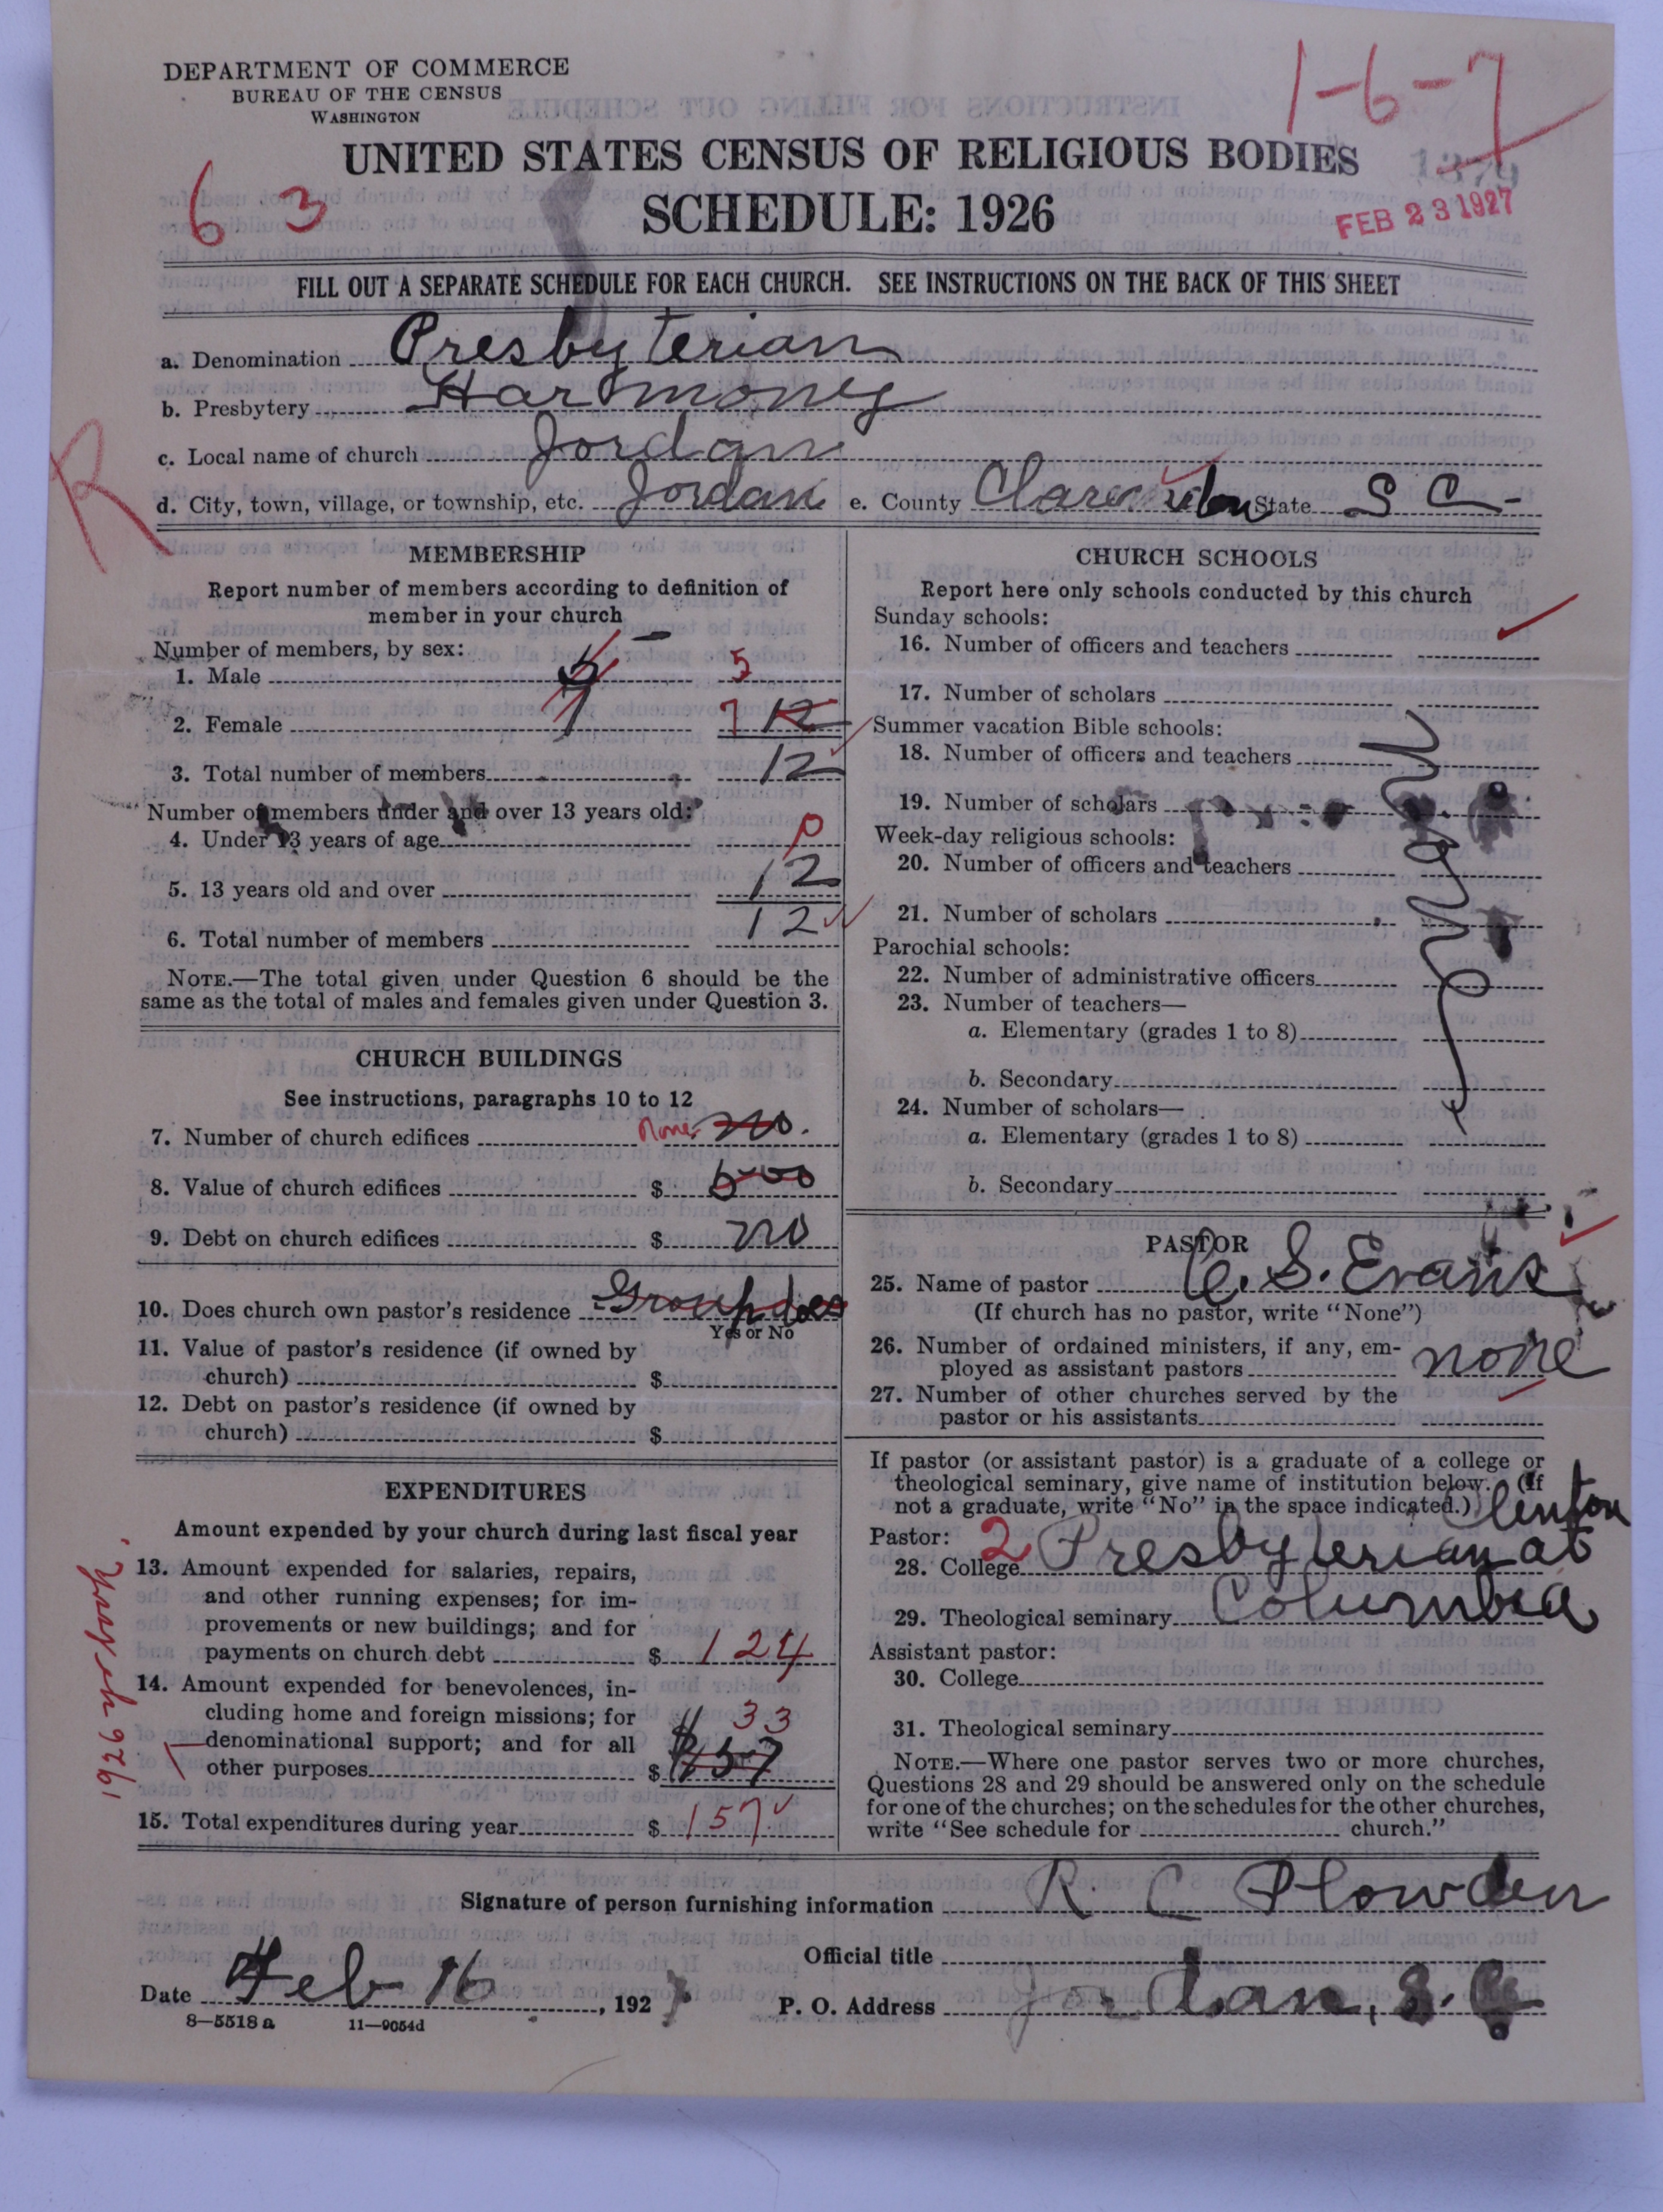 DEPARTMENT OF COMMERCE
BUREAU OF THE CENSUS
WASHINGTON
1-6-7
UNITED STATES CENSUS OF RELIGIOUS BODIES
SCHEDULE: 1926
6 3
FEB 23 1927
FILL OUT A SEPARATE SCHEDULE FOR EACH CHURCH. SEE INSTRUCTIONS ON THE BACK OF THIS SHEET
a. Denomination Presbyterian
b. Presbytery Harmoney
c. Local name of church Jordan
R
d. City, town, village, or township, etc. Jordan e. County Clarendon State S C -
MEMBERSHIP
Report number of members according to definition of
member in your church
Number of members, by sex:
1. Male 5 5
2. Female 7 7 12
3. Total number of members 12
Number of members under and over 13 years old:
4. Under 13 years of age 0
5. 13 years old and over 12
6. Total number of members 12
NOTE.—The total given under Question 6 should be the
same as the total of males and females given under Question 3.
CHURCH BUILDINGS
See instructions, paragraphs 10 to 12
7. Number of church edifices None no.
8. Value of church edifices $
9. Debt on church edifices $ no
10. Does church own pastor's residence Group does
Yes or No
11. Value of pastor's residence (if owned by
church) $
12. Debt on pastor's residence (if owned by
church) $
EXPENDITURES
Amount expended by your church during last fiscal year
13. Amount expended for salaries, repairs,
and other running expenses; for im-
provements or new buildings; and for
payments on church debt $ 124
14. Amount expended for benevolences, in-
cluding home and foreign missions; for
denominational support; and for all
other purposes $ 33 157
15. Total expenditures during year $ 157
1926
CHURCH SCHOOLS
Report here only schools conducted by this church
Sunday schools:
16. Number of officers and teachers
17. Number of scholars
Summer vacation Bible schools:
18. Number of officers and teachers
19. Number of scholars
Week-day religious schools:
20. Number of officers and teachers
21. Number of scholars
Parochial schools:
22. Number of administrative officers
23. Number of teachers—
a. Elementary (grades 1 to 8)
b. Secondary
24. Number of scholars—
a. Elementary (grades 1 to 8)
b. Secondary
PASTOR
25. Name of pastor C. S. Evans
(If church has no pastor, write "None")
26. Number of ordained ministers, if any, em-
ployed as assistant pastors none
27. Number of other churches served by the
pastor or his assistants
If pastor (or assistant pastor) is a graduate of a college or
theological seminary, give name of institution below. (If
not a graduate, write "No" in the space indicated.)
Pastor: Clinton
28. College 2 Presbyterian at
29. Theological seminary Columbia
Assistant pastor:
30. College
31. Theological seminary
NOTE.—Where one pastor serves two or more churches,
Questions 28 and 29 should be answered only on the schedule
for one of the churches; on the schedules for the other churches,
write "See schedule for church."
Signature of person furnishing information R. C Plowden
Official title
Date Feb 16, 192
P. O. Address Jordan, S. C
8—5518 a 11—9054d